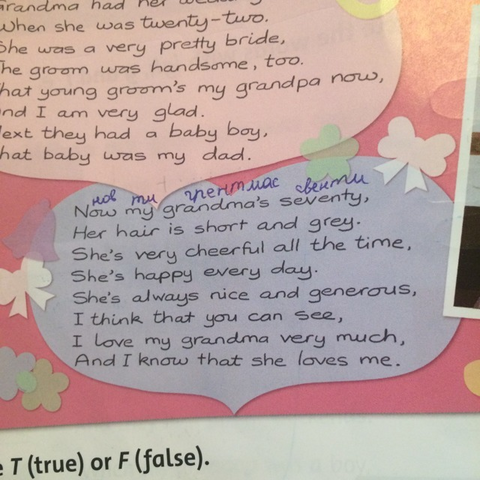 Grandma had her
When she was twenty-two.
She was a very pretty bride,
The groom was handsome, too.
hat young groom's my grandpa now,
nd I am very glad.
ext they had a baby boy,
hat baby was my dad.
нов ти свенти
Now my grandma's seventy,
Her hair is short and grey.
She's very cheerful all the time,
She's happy every day.
She's always nice and generous,
I think that you can see,
I love my grandma very much,
And I know that she loves me.
e T (true) or F (false).